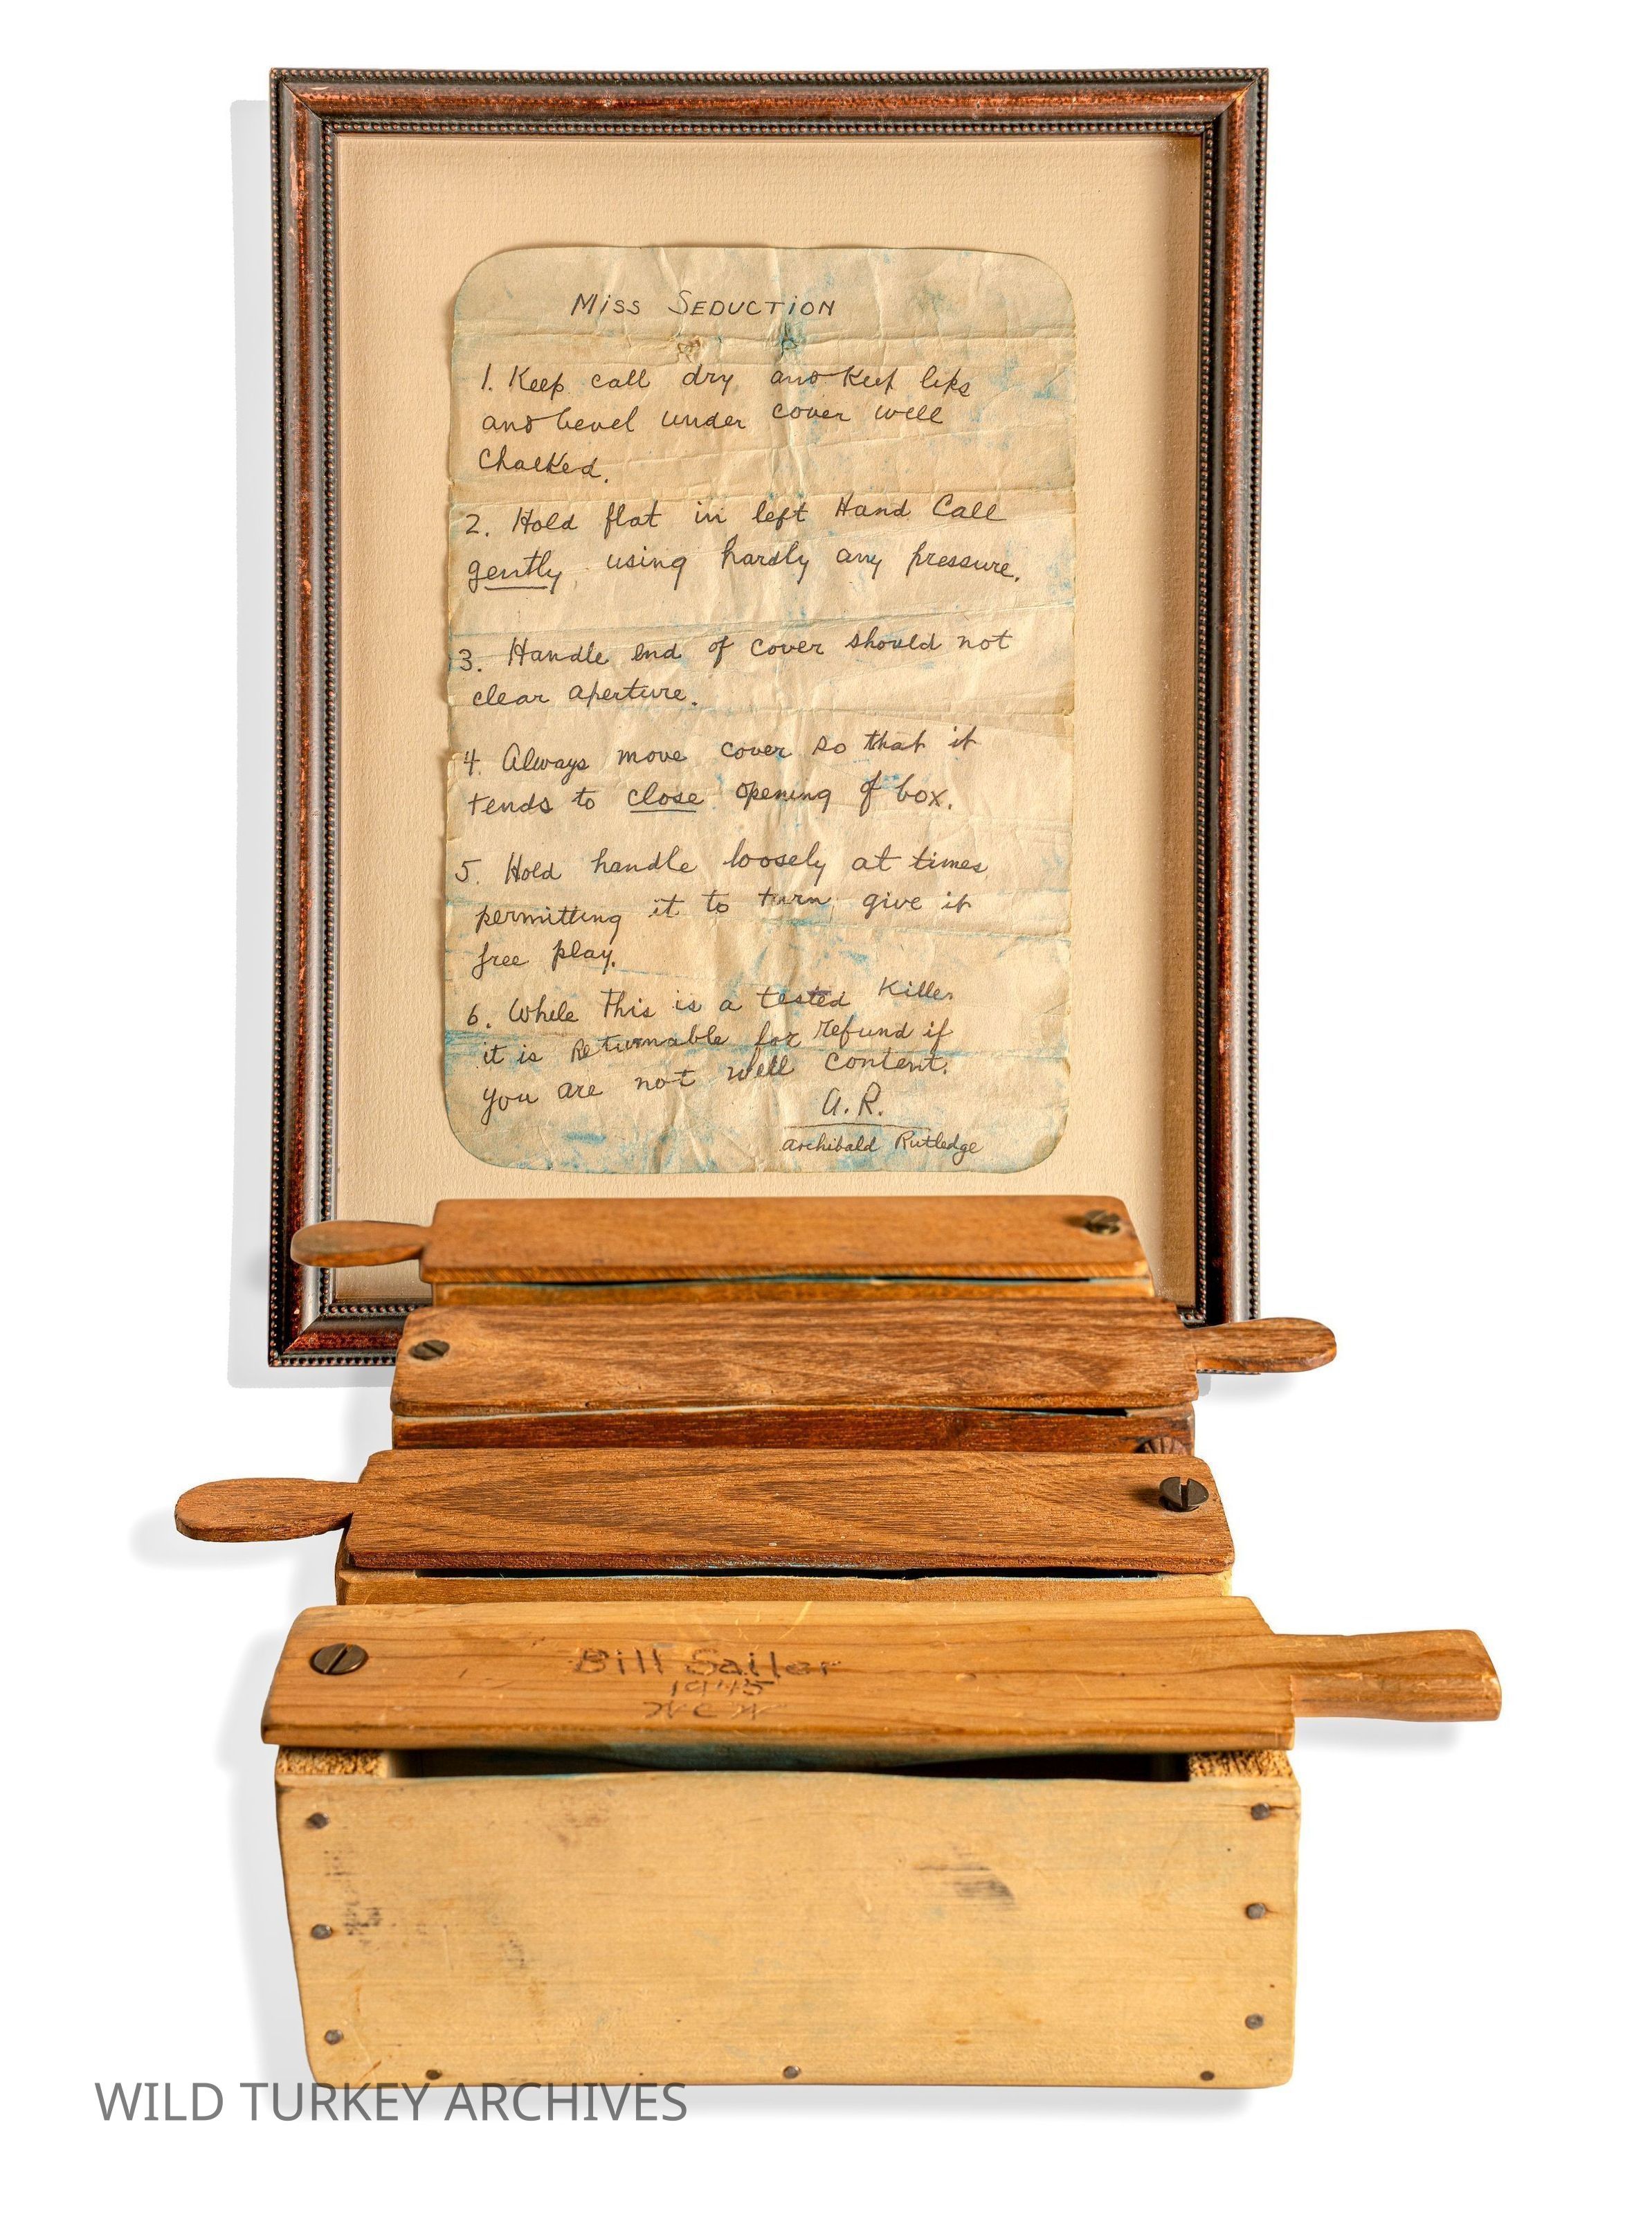 Miss SEDUCTION
1. Keep call dry and keep lips
and bevel under cover well
chalked.
2. Hold flat in left Hand Call
gently using hardly any pressure.
3. Handle end of cover should not
clear aperture.
4. Always move cover so that it
tends to close opening of box.
5. Hold handle loosely at times
permitting it to turn give it
free play.
6. While this is a tested Killer
it is Returnable for refund if
you are not well content.
A.R.
Archibald Rutledge
Bill Sailer
1945
WILD TURKEY ARCHIVES